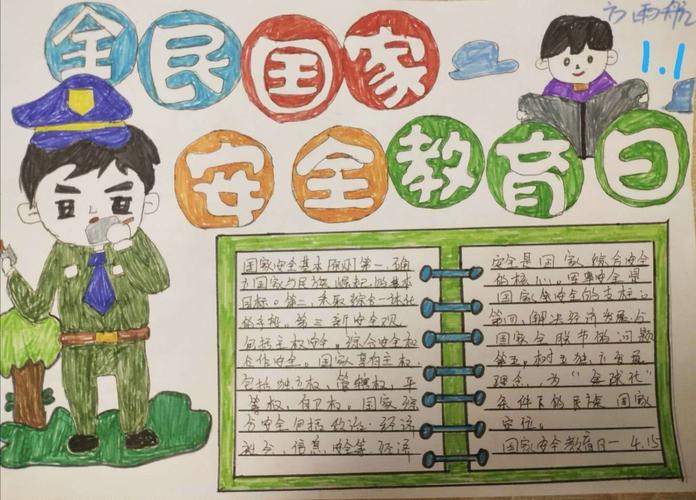 全民国家
安全教育日
1.1
国家安全基本原则第一,确
立国家与民族崛起的基本
目标。第二,采取综合一体化
的手段。第三新安全观
包括主权安全。综合安全和
合作安全。国家享有主权
包括独立权、管辖权、平
等权、自卫权。国家综
合安全包括政治、经济
社会、信息安全等,经济
安全是国家综合安全
的核心。军事安全是
国家综安全的支柱。
第四,解决经济发展与
国家会脱节的问题
第五,树立独立发展
理念,为"全球化"
条件下的民族国家
定位。
国家安全教育日一4.15